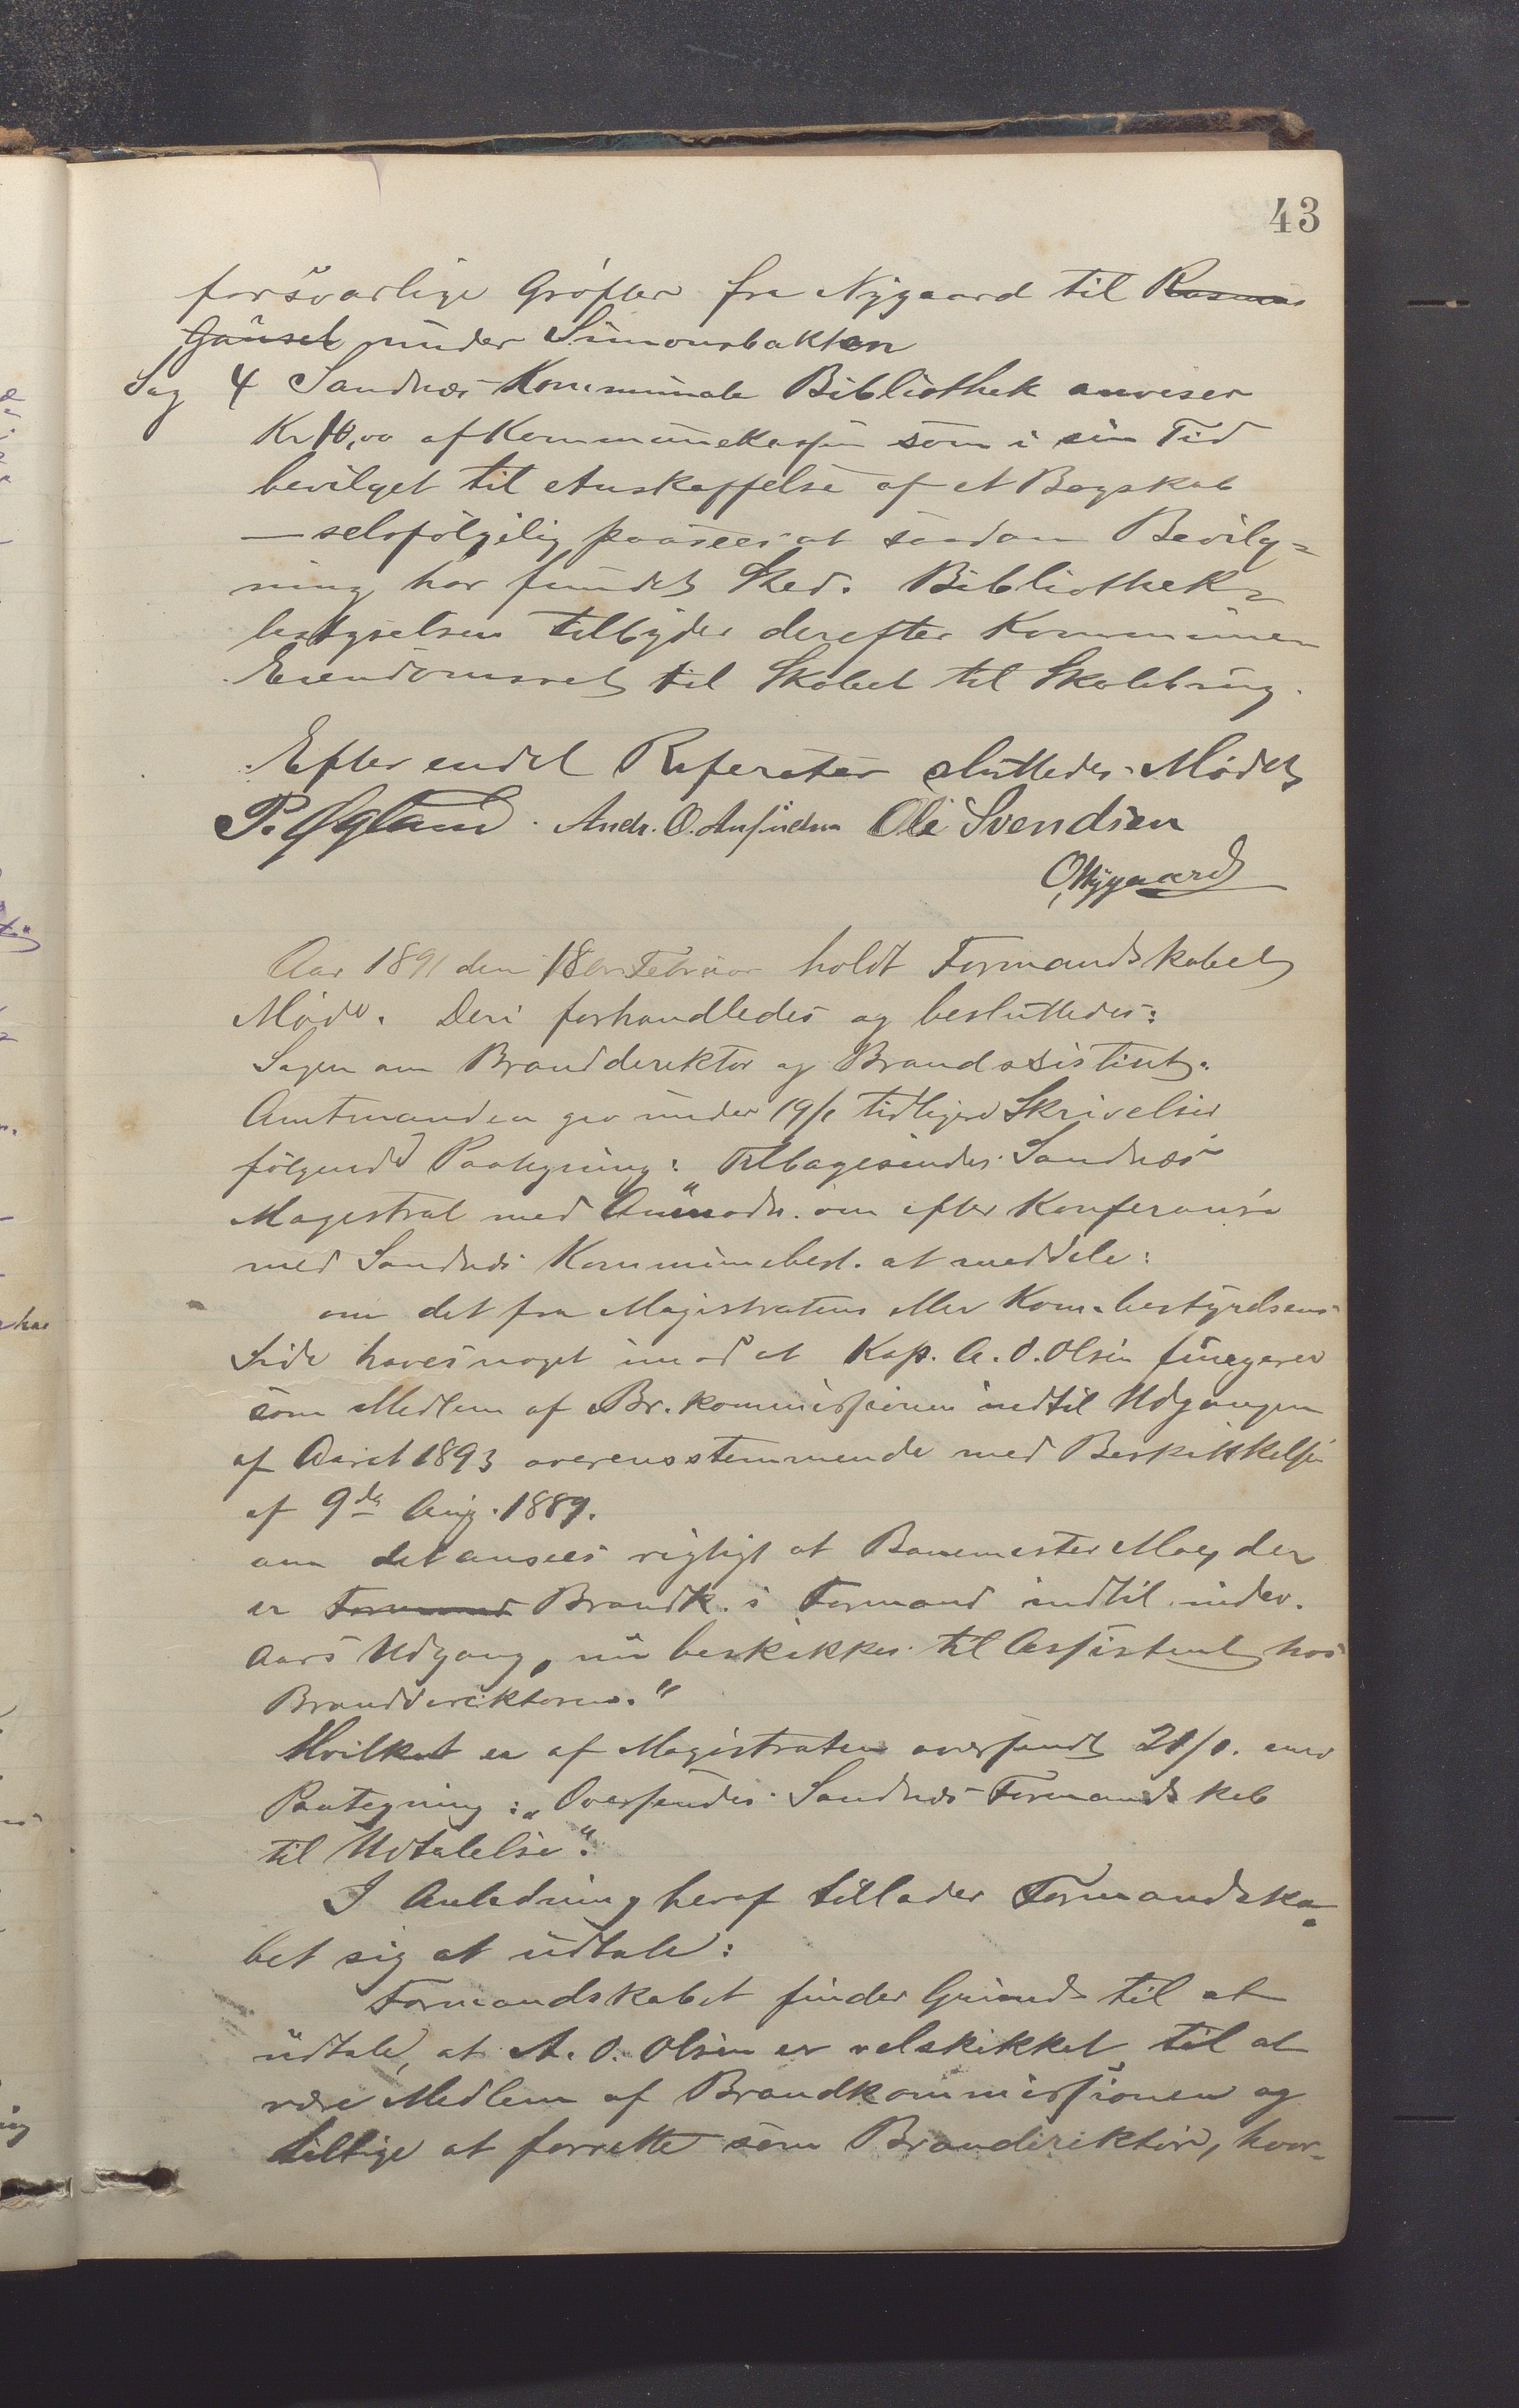 43
forsvarlige Grøfter fra Nygaard til Rasmus
Gausel under Simonsbakken
Sag 4 Sandnæs Kommunale Bibliothek anviser
Kr 10,00 af Kommunekassen som i sin Tid
bevilget til Anskaffelse af et Bogskab
— selvfølgelig paasees at saadan Bevilg=
ning har fundet Sted. Bibliothek=
bestyrelsen tilbyder derefter Kommunen
Eiendomsret til Skabet til Skolebrug.
Efter endel Referater sluttedes Mødet
P. Øgland. Andr. O. Aufindsen Ole Svendsen
O. Nygaard
Aar 1891 den 18de Februar holdt Formandskabet
Møde. Deri forhandledes og besluttedes:
Sagen om Branddirektør og Brandassistent.
Amtmanden gav under 19/1 tidligere Skrivelser
følgende Paategning: „Tilbagesendes Sandnæs
Magestrat med Anmodn. om efter Konferanse
med Sandnæs Kommunebest. at meddele:
om det fra Magistratens eller Kom.bestyrelsens
Side haves noget imod at Kap. A. O. Olsen fungerer
som Medlem af Br.kommissionen indtil Udgangen
af Aaret 1893 overensstemmende med Beskikkelse
af 9de Aug. 1889.
om det ansees rigtigt at Banemester Moe, der
er Formand Brandk.s Formand indtil indev.
Aars Udgang, nu beskikkes til Assistent hos
Branddirektøren."
Hvilket er af Magistraten oversendt 21/1. med
Paategning: „Oversendes Sandnæs Formandskab
til Udtalelse".
I Anledning heraf tillader Formandska=
bet sig at udtale:
Formandskabet finder Grund til at
udtale, at A. O. Olsen er velskikket til at
være Medlem af Brandkommissionen og
tillige at forrette som Brandirektør, hvor=